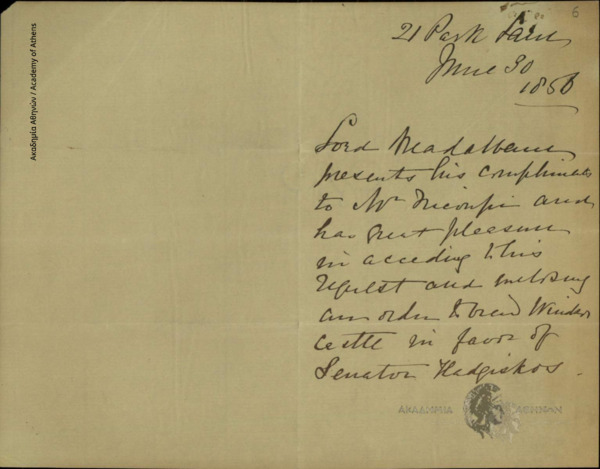 6
21 Park Lane
June 30
1856
Lord Breadalbane
presents his compliments
to Mr Tricoupi and
has great pleasure
in acceding to his
request and enclosing
an order to view Windsor
Castle in favor of
Senator Hadgiskos.
ΑΚΑΔΗΜΙΑ ΑΘΗΝΩΝ
Ακαδημία Αθηνών / Academy of Athens